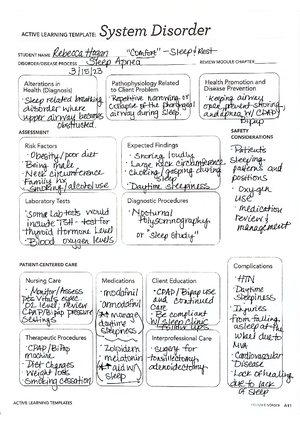 ACTIVE LEARNING TEMPLATE: System Disorder
STUDENT NAME Rebecca Hogan "Comfort" - Sleep & Rest
DISORDER/DISEASE PROCESS Sleep Apnea REVIEW MODULE CHAPTER
3/15/23
Alterations in
Health (Diagnosis)
Sleep related breathing
disorder where
upper airway becomes
obstructed.
Pathophysiology Related
to Client Problem
Repetitive narrowing or
collapse of the pharyngeal
airway during sleep.
Health Promotion and
Disease Prevention
Keeping airway
open, prevent snoring,
and apnea w/ CPAP/
Bipap
ASSESSMENT
Risk Factors
Obesity/poor diet
Being male
Neck circumference
Family hx
Smoking/alcohol use
Expected Findings
Snoring loudly
Large neck circumference
Choking/gasping during
sleep
Daytime sleepiness
SAFETY
CONSIDERATIONS
Patients
Sleeping
patterns and
positions
Oxygen
use
medication
review &
management
Laboratory Tests
Some Lab tests would
include TSH - test for
thyroid Hormone Level
Blood oxygen levels
Diagnostic Procedures
Nocturnal
Polysomnography
or "Sleep Study"
PATIENT-CENTERED CARE
Nursing Care
Monitor/Assess
Vitals
O2 level, review
CPAP/Bipap Pressure
Settings
Medications
modafinil
armodafinil
daytime
sleepiness
zolpidem
melatonin
aid w/
sleep
Client Education
CPAP/Bipap use
and continued
care
Be compliant
w/ sleep clinic
follow ups
Therapeutic Procedures
CPAP/Bipap
machine
Diet Changes
Weight loss
Smoking cessation
Interprofessional Care
surgery for
tonsillectomy
adenoidectomy
Complications
HTN
Daytime
Sleepiness
Injuries
from falling
asleep at the
wheel due to
MVA
Cardiovascular
Disease
Lack of healing
due to lack
of sleep
ACTIVE LEARNING TEMPLATES
A11